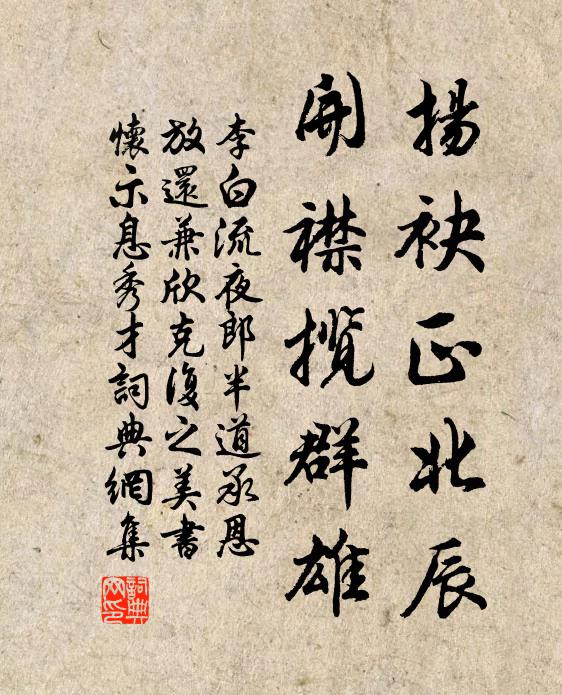 揚袂正北辰
開襟攬群雄
李白流夜郎半道承恩
放還兼欣克復之美書
懷示息秀才詞典網集
詞典
网印